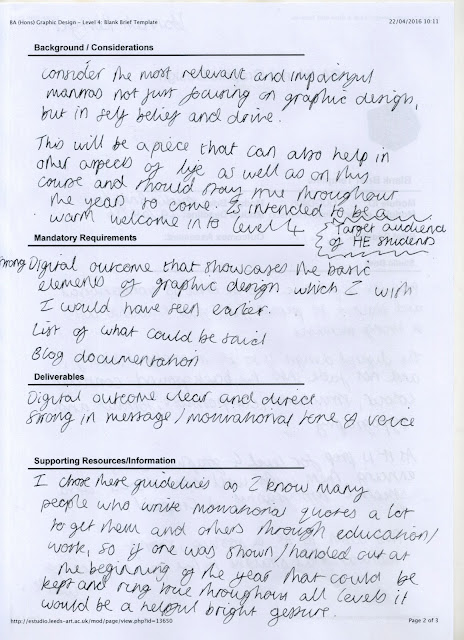 BA (Hons) Graphic Design – Level 4: Blank Brief Template 22/04/2016 10:11
Background / Considerations
consider the most relevant and impactful
mantras not just focusing on graphic design,
but in self belief and drive.
This will be a piece that can also help in
other aspects of life as well as on this
course and should stay true throughout
the years to come. Is intended to be a
warm welcome in to level 4
Target audience
of HE students
Mandatory Requirements
strong Digital outcome that showcases the basic
elements of graphic design which I wish
I would have seen earlier.
List of what could be said
Blog documentation
Deliverables
Digital outcome clear and direct
Strong in message / motivational tone of voice
Supporting Resources/Information
I chose these guidelines as I know many
people who write motivational quotes a lot
to get them and others through education/
work, so if one was shown / handed out at
the beginning of the year that could be
kept and ring true throughout all levels it
would be a helpful bright gesture.
http://estudio.leeds-art.ac.uk/mod/page/view.php?id=13650 Page 2 of 3